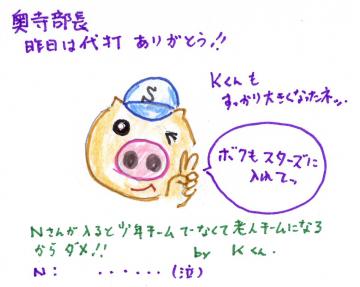 奥寺部長
昨日は代打 ありがとう!!
Kくんも
すっかり大きくなったネッ.
S
ボクもスターズに
入れてッ
Nさんが入ると少年チームでなくて老人チームになる
からダメ!!　by Kくん.
N:　・・・・・・(泣)